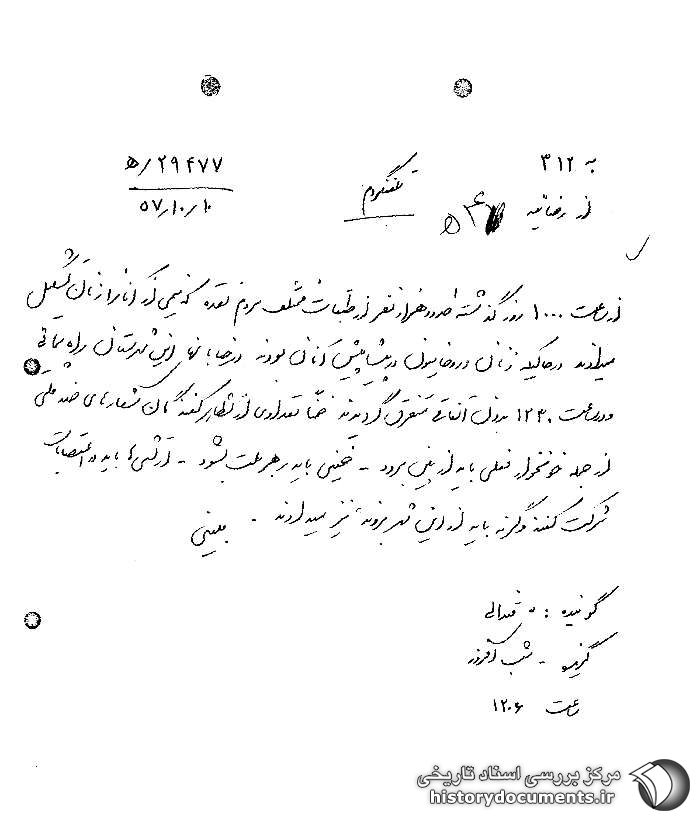 به ۳۱۲
۲۹۴۷۷/ﻫ
از رضائیه
۵۷/۱۰/۱۰
تلفنگرام
از ساعت ۱۰۰۰ روز گذشته حدود هزار نفر از طبقات مختلف مردم نقده که نیمی از آنانرا زنان تشکیل
میدادند در حالیکه زنان و روحانیون در پیشاپیش آنان بودند در خیابانهای این شهرستان راه پیمائی
و در ساعت ۱۲۳۰ بدون اتفاقی متفرق گردیدند ضمناً تعدادی از تظاهرکنندگان شعارهای ضد ملی
از جمله خونخوار فعلی باید از بین برود - خمینی باید رهبر ملت بشود - ارتشی ها باید در اعتصابات
شرکت کنند وگرنه باید از این شهر بروند، نیز میدادند -
گوینده :
گیرنده - شب افروز
ساعت ۱۲۰۶
مرکز بررسی اسناد تاریخی
historydocuments.ir